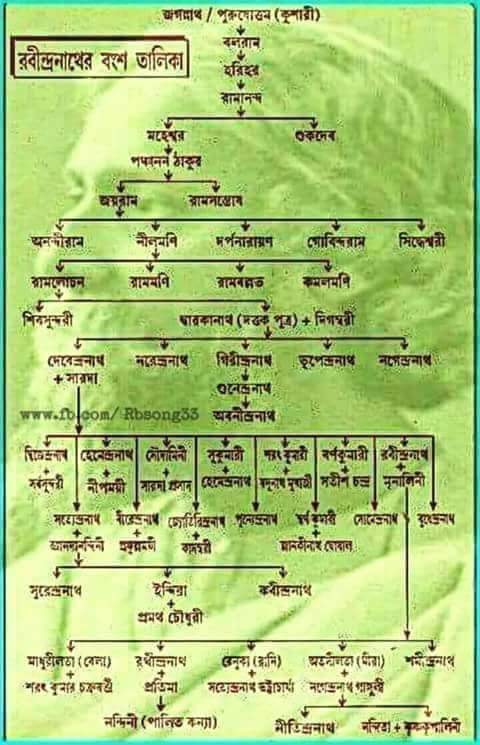 জগন্নাথ / পুরুষোত্তম (কুশারী)
বলরাম
রবীন্দ্রনাথের বংশ তালিকা
হরিহর
রামানন্দ
মহেশ্বর শুকদেব
পঞ্চানন ঠাকুর
জয়রাম রামসন্তোষ
অনন্দীরাম নীলমণি দর্পনারায়ণ গোবিন্দরাম সিদ্ধেশ্বরী
রামলোচন রামমণি রামবল্লভ কমলমণি
শিবসুন্দরী দ্বারকানাথ (দত্তক পুত্র) + দিগম্বরী
দেবেন্দ্রনাথ নরেন্দ্রনাথ গিরীন্দ্রনাথ ভূপেন্দ্রনাথ নগেন্দ্রনাথ
+ সারদা
গুনেন্দ্রনাথ
www.fb.com/ Rbsong33 অবনীন্দ্রনাথ
দ্বিজেন্দ্রনাথ হেমেন্দ্রনাথ সৌদামিনী সুকুমারী শরৎ কুমারী বর্ণকুমারী রবীন্দ্রনাথ
+ + + + + + +
সর্বসুন্দরী নীপময়ী সারদা প্রসাদ হেমেন্দ্রনাথ যদুনাথ মুখার্জী সতীশ চন্দ্র মৃনালিনী
সত্যেন্দ্রনাথ বীরেন্দ্রনাথ জ্যোতিরিন্দ্রনাথ পূণ্যেন্দ্রনাথ স্বর্ণ কুমারী সোমেন্দ্রনাথ বুধেন্দ্রনাথ
+ + + +
জ্ঞানদানন্দিনী প্রফুল্লময়ী কাদম্বরী জানকীনাথ ঘোষাল
সুরেন্দ্রনাথ ইন্দিরা কবীন্দ্রনাথ
+
প্রমথ চৌধুরী
মাধুরীলতা (বেলা) রথীন্দ্রনাথ রেনুকা (রানি) অতসীলতা (মীরা) শমীন্দ্রনাথ
+ + + +
শরৎ কুমার চক্রবর্ত্তী প্রতিমা সত্যেন্দ্রনাথ ভট্টাচার্য্য নগেন্দ্রনাথ গাঙ্গুলী
নন্দিনী (পালিত কন্যা) নীতিন্দ্রনাথ নন্দিতা + কৃষ্ণকৃপালিনী